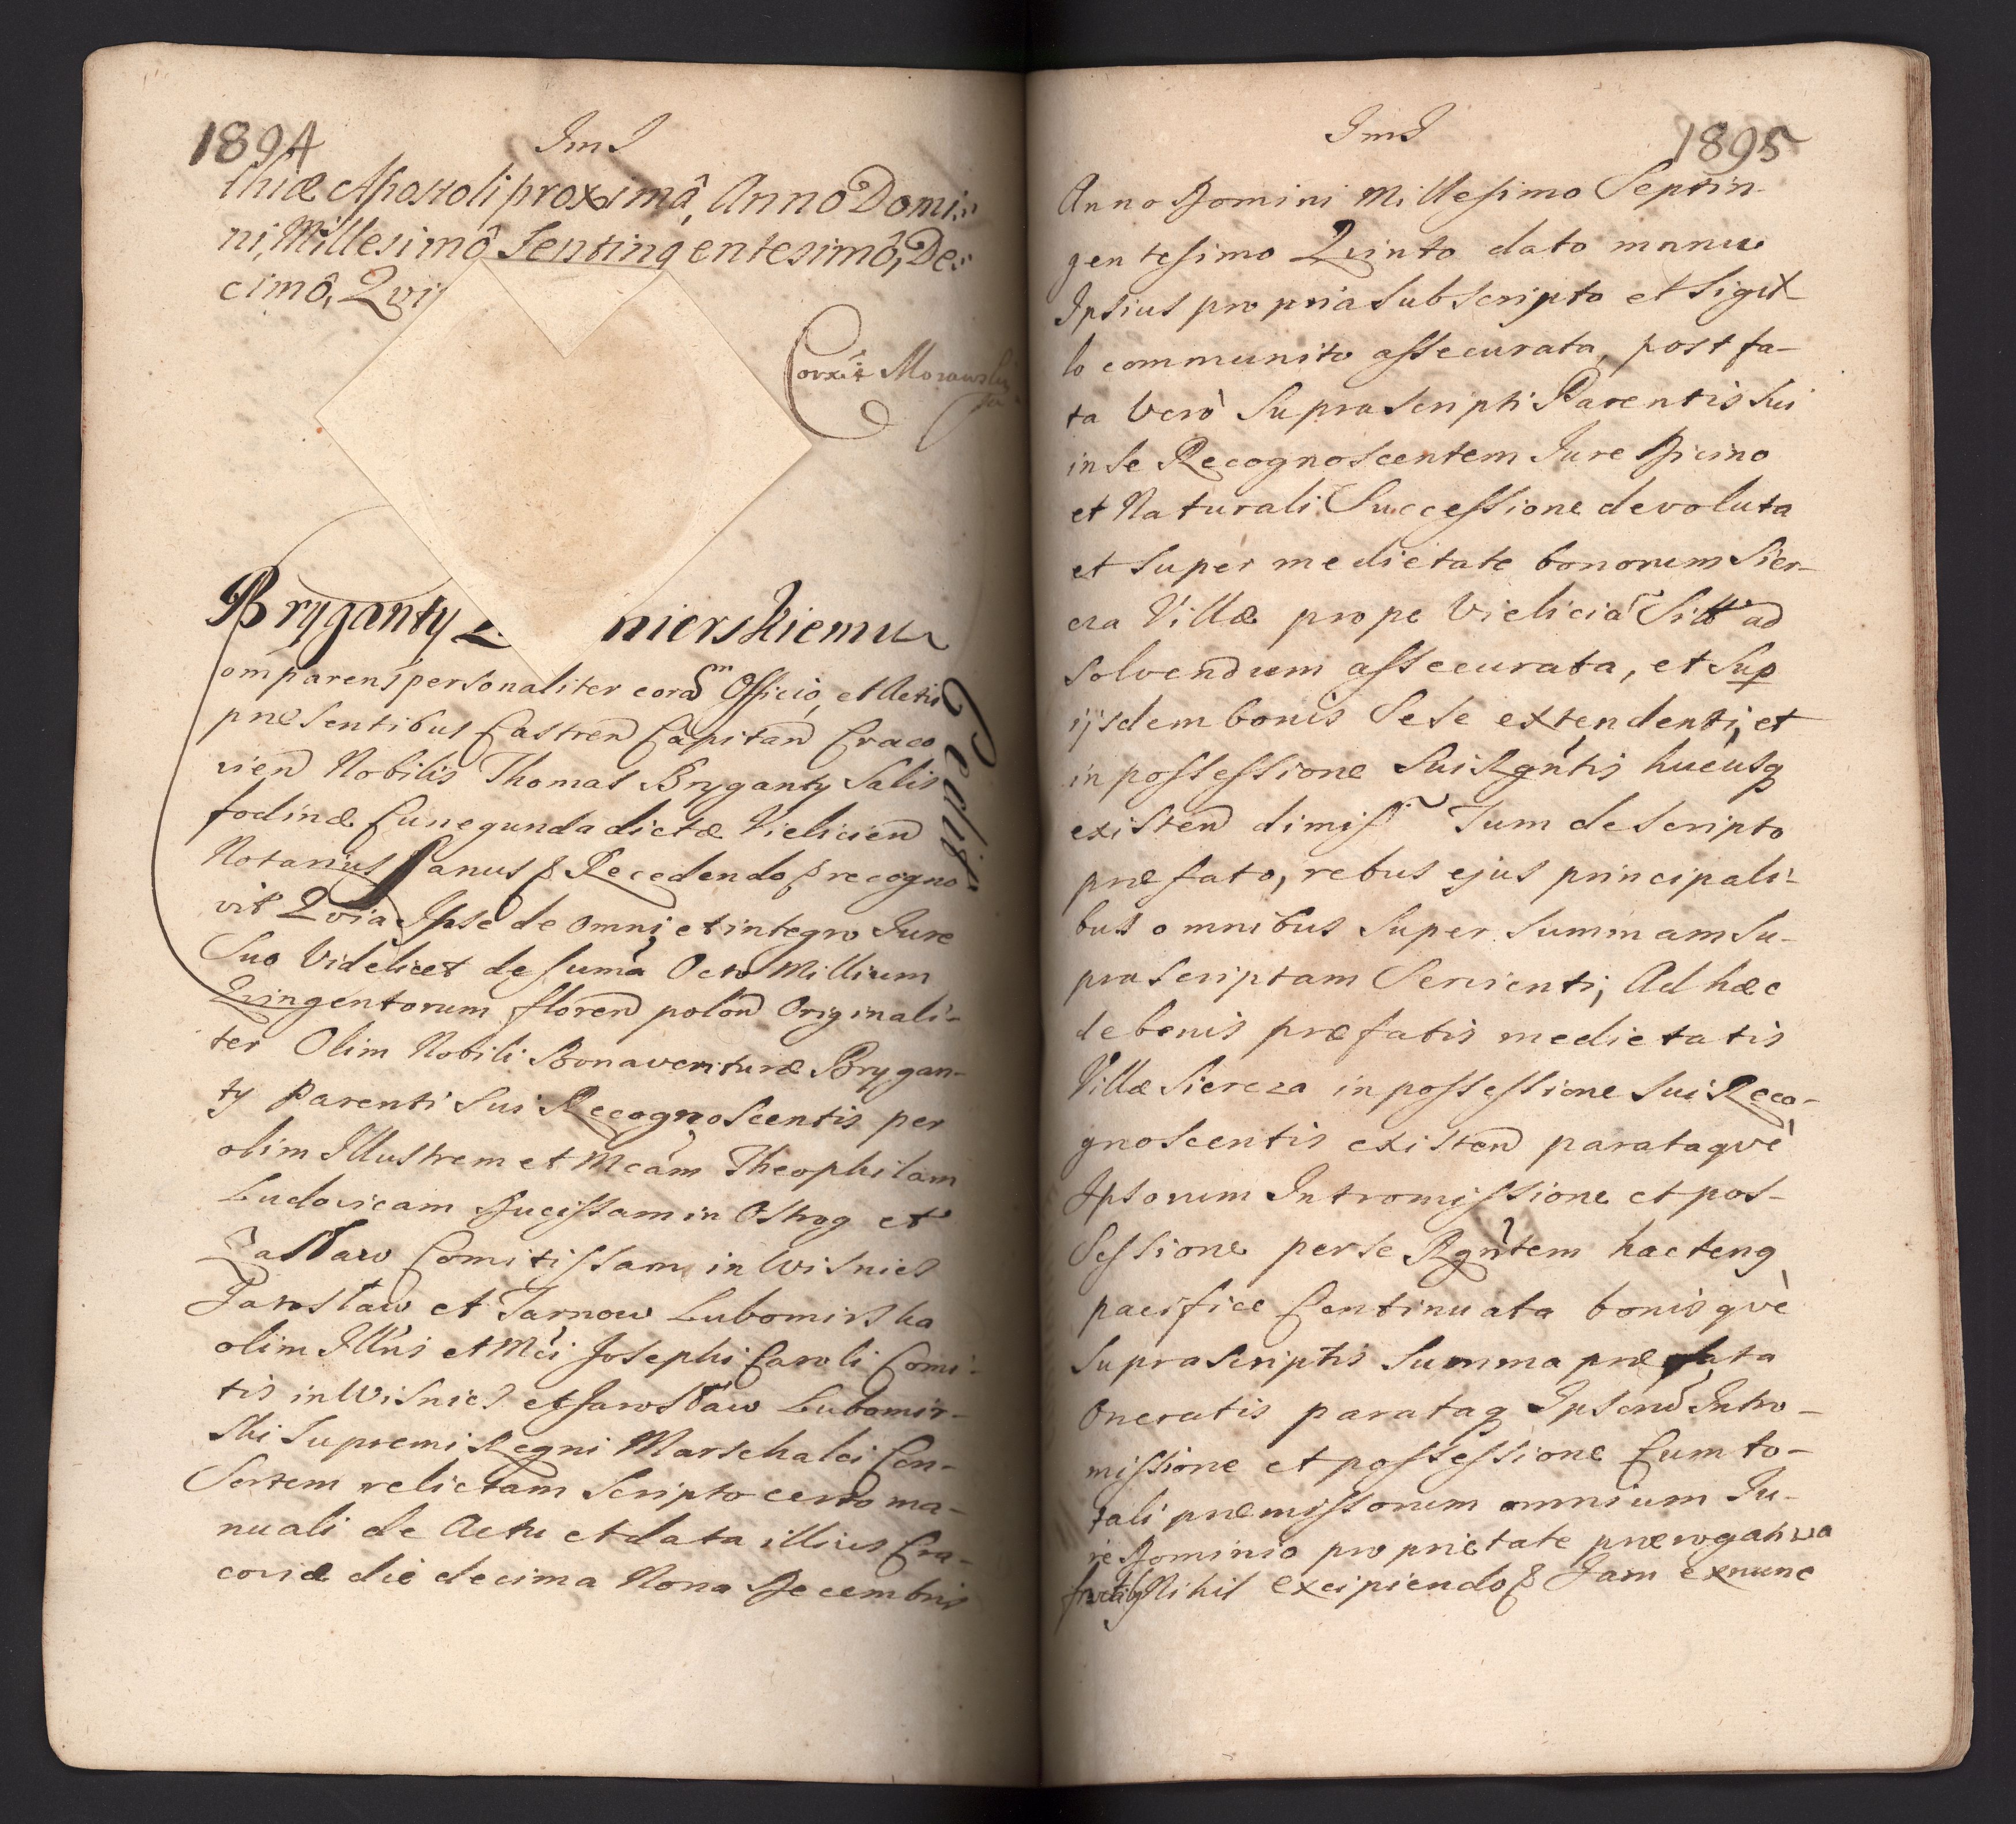 1894
JmJ
thiæ Apostoli proximâ, Anno Domi-
ni, Millesimô Septingentesimô, De-
cimô, Qvi
Corrêt Morawski
Bryganty nierskiemu
Cedit
omparens personaliter corā Officio, et Actis
præsentibus Castren Capitan Craco
vien Nobilis Thomas Bryganty Salis
fodinæ Cunegunda dictæ Vielicien
Notarius Sanus & Recedendo & recogno
vit Qvia Ipse de omni et integro Jure
Suo Videlicet de sumā Octo Millium
Qvingentorum floren polon Originali-
ter Olim Nobili Bonaventuræ Brygan-
ty Parenti Sui Recognoscentis per
olim Illustrem et Mcām Theophilam
Ludovicam Ducissam in Ostrog et
Zasław Comitissam in Wisnics
Jarosław et Tarnow Lubomirska
olim Illūs et Mci Josephi Caroli Comi-
tis in Wisnics et Jarosław Lubomir-
ski Supremi Regni Marschalci Con-
sortem relictam Scripto certo ma-
nuali de Actu et data illius Cra-
coviæ die decima Nona Decembris
JmJ
1895
Anno Domini Millesimo Septin-
gentesimo Qvinto dato manu
Ipsius propria subscripto et sigil-
lo communito assecurata, post fa-
ta Verò Suprascripti Parentis Sui
in se Recognoscentem Jure Vicino
et Naturali Successione devoluta
et super medietate bonorum Sier-
cza Villæ prope Vieliciā Sitt ad
solvendum assecurata, et Sup
ijsdem bonis Sese extendenti, et
in possessione Sui Rgn̄tis hucusq
existen dimiss Tum de Scripto
præfato, rebus ejus principali-
bus omnibus Super Summam Su-
prascriptam Servienti, Ad hæc
de bonis præfatis medietatis
Villæ Siercza in possessione Sui Reco-
gnoscentis existen parataqve
Ipsorum Intromissione et pos-
sessione per se Rgn̄tem hactenq
pacifice Continuata bonisqvè
Suprascriptis Summa præfata
Oneratis parataq Ipsorū Intro-
missione et possessione Cum to-
tali præmissorum omnium Ju-
re Dominio proprietate prærogativa
fructibq Nihil excipiendo & Jam exnunc